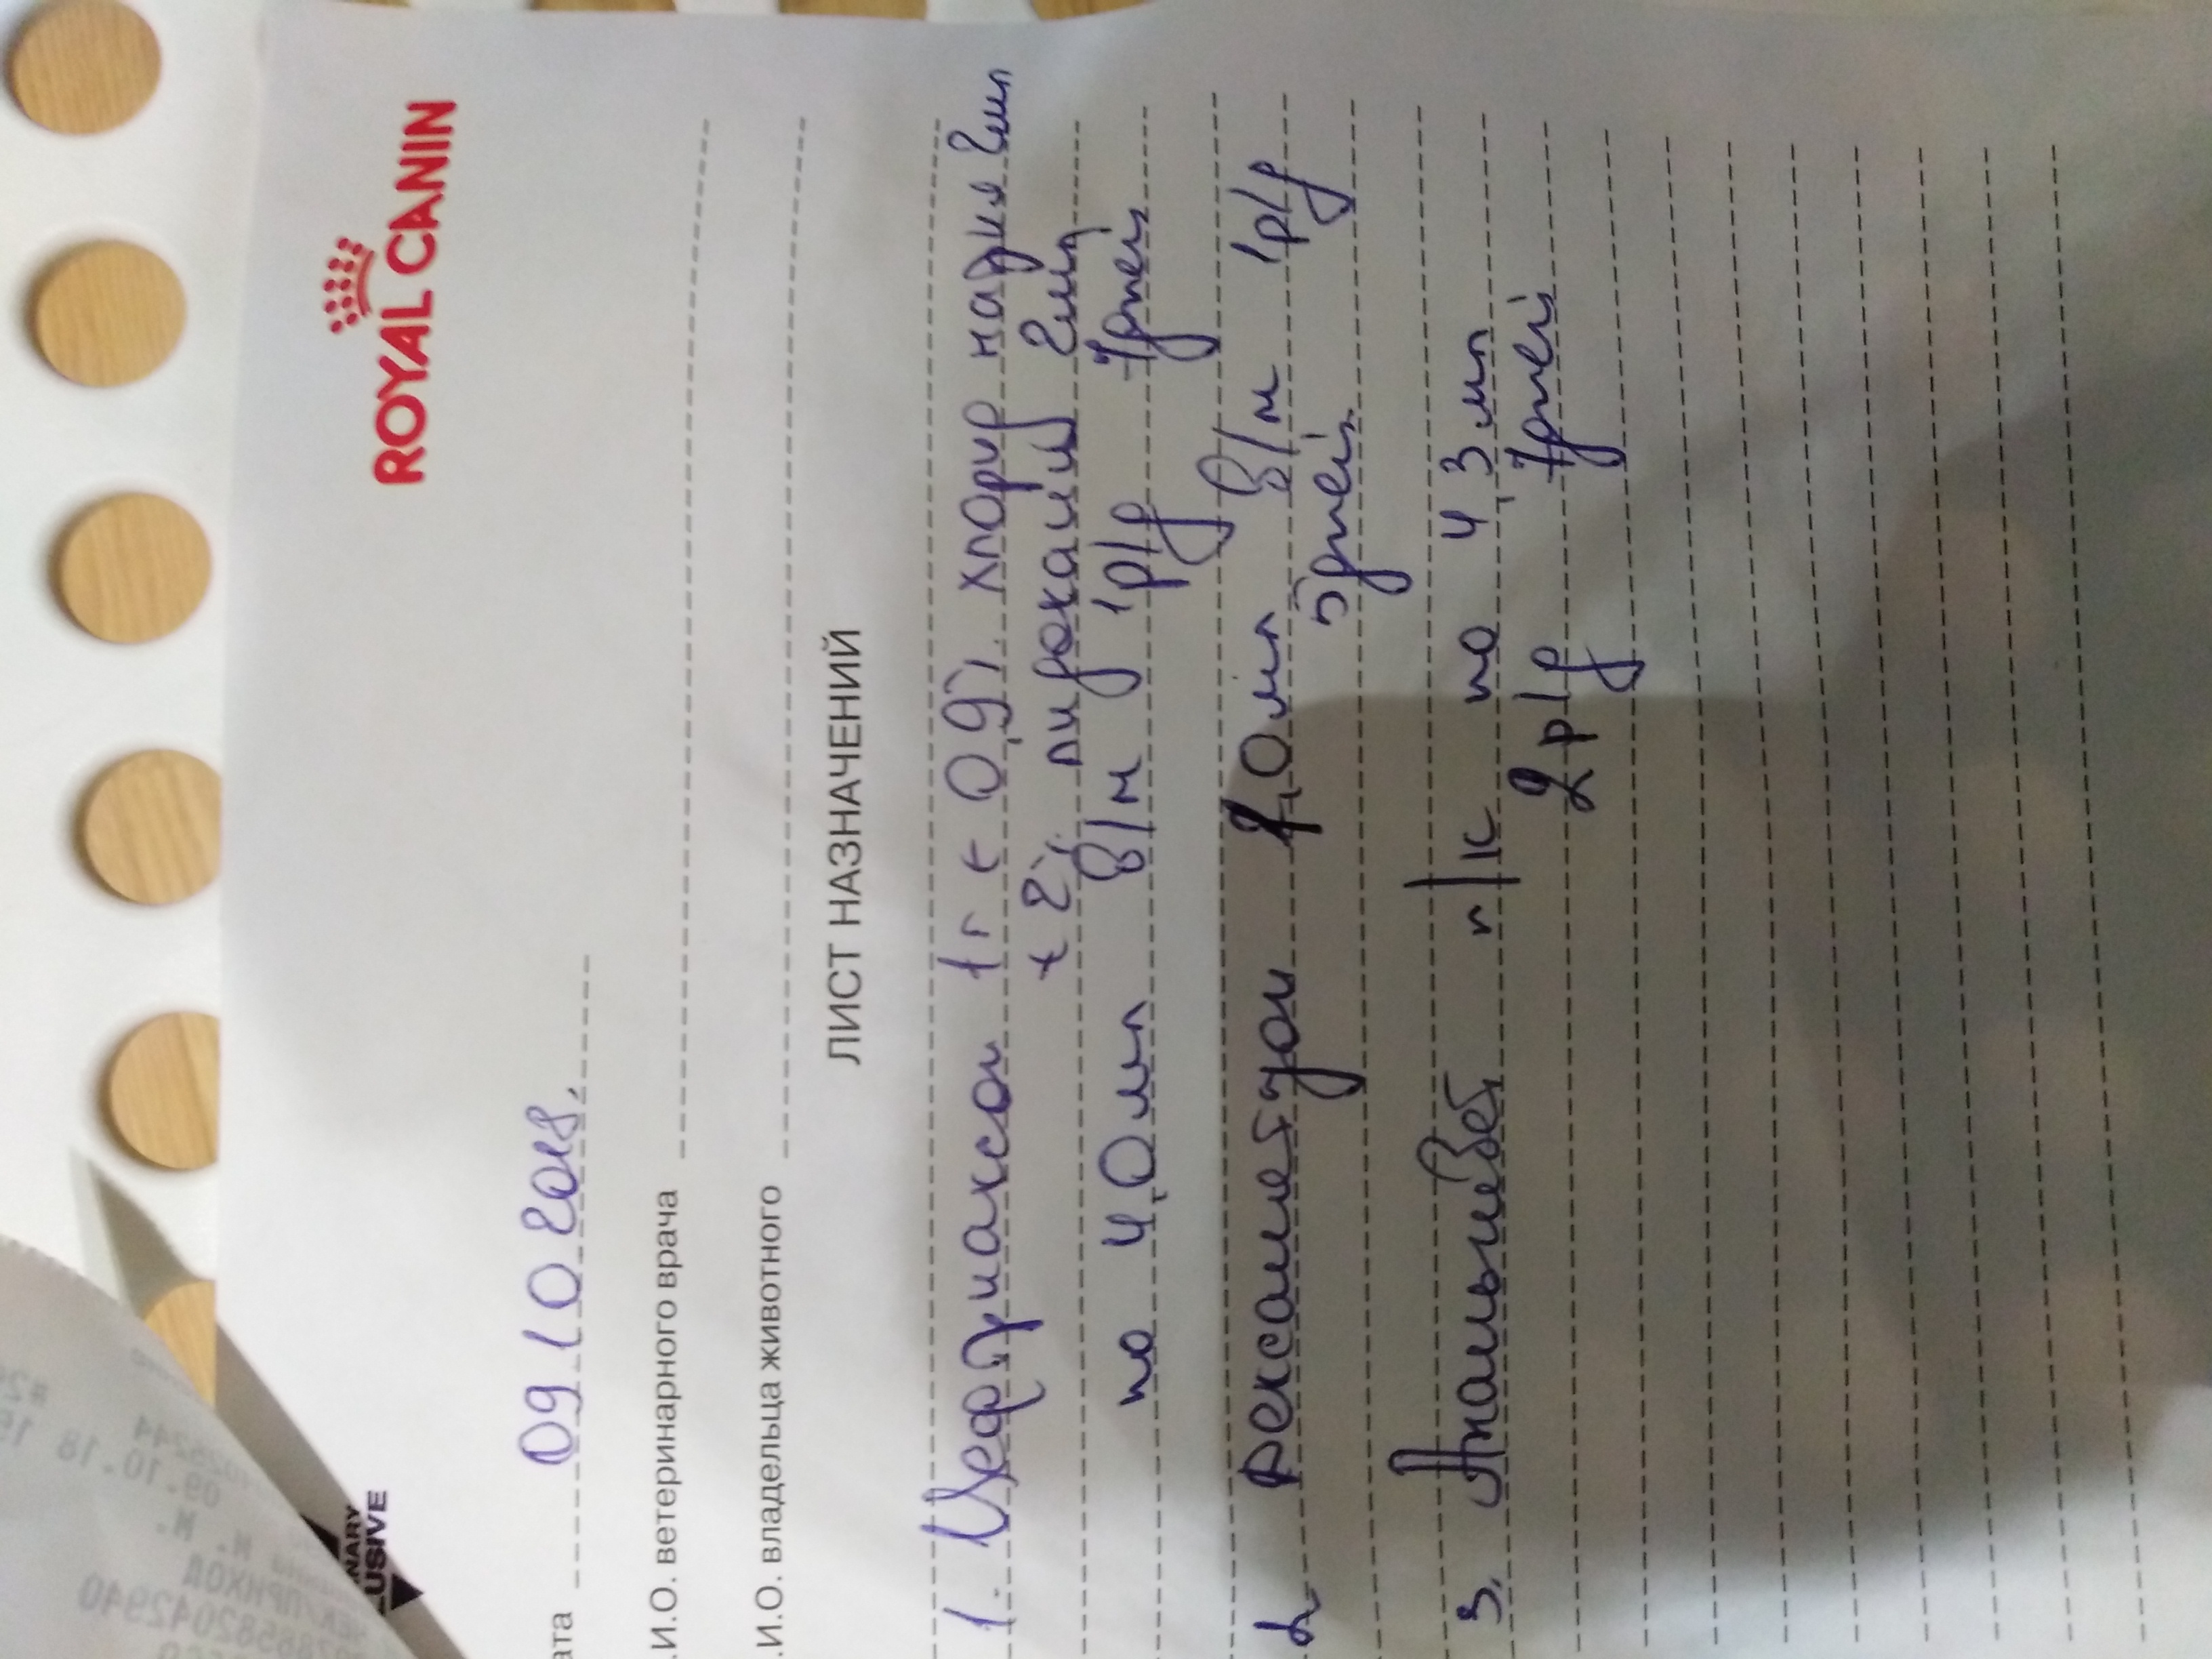 ROYAL CANIN
NARY
LUSIVE
ата 09.10.2018.
.И.О. ветеринарного врача
.И.О. владельца животного
ЛИСТ НАЗНАЧЕНИЙ
1. Цефтриаксон 1г + 0,9% хлорид натрия 2мл
+ 2% лидокаин 2мл
по 4,0мл в/м 1р/д 7дней
2. Дексаметазон 1,0мл в/м 1р/д
5дней
3. Анальгивет п/к по 4,3мл
2р/д 7дней
09.10.18
ЧЕК/ПРИХОД